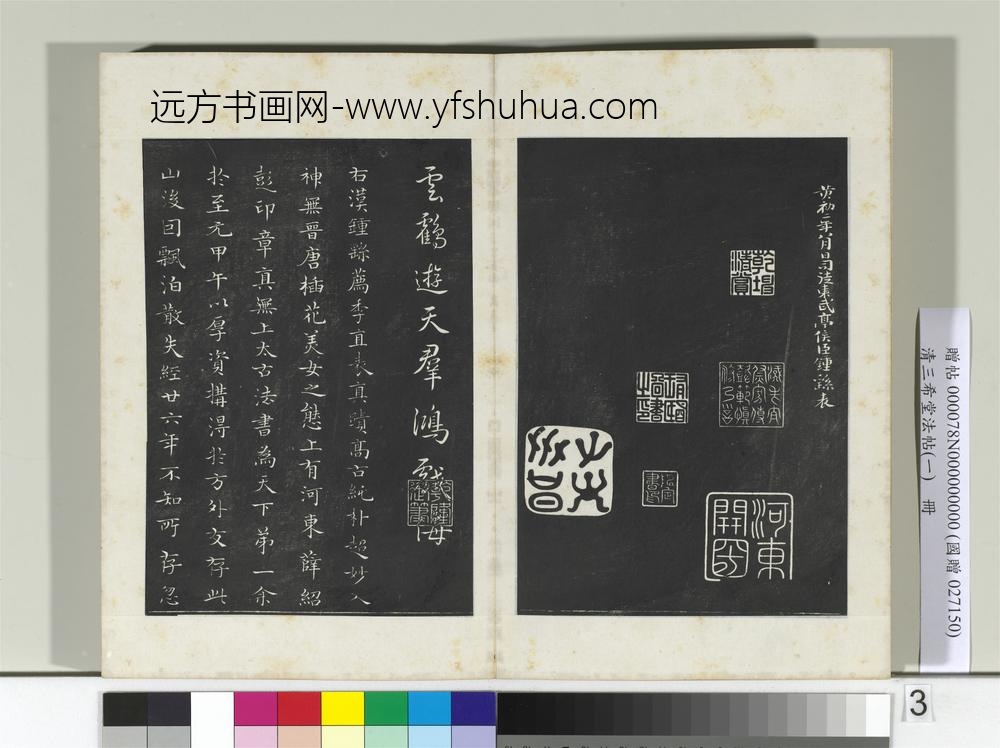 远方书画网-www.yfshuhua.com
黄初二年八月日司徒東武亭侯臣鍾繇表
河東
雲鶴遊天羣鴻戲海
右漢鍾繇薦季直表真蹟高古純朴超妙入
神無晉唐插花美女之態上有河東薛紹
彭印章真無上太古法書為天下第一余
於至元甲午以厚資購得於方外友存此
山後因飄泊散失經廿六年不知所存忽
贈帖 000078N000000000 (國贈 027150)
清三希堂法帖(一) 冊
3